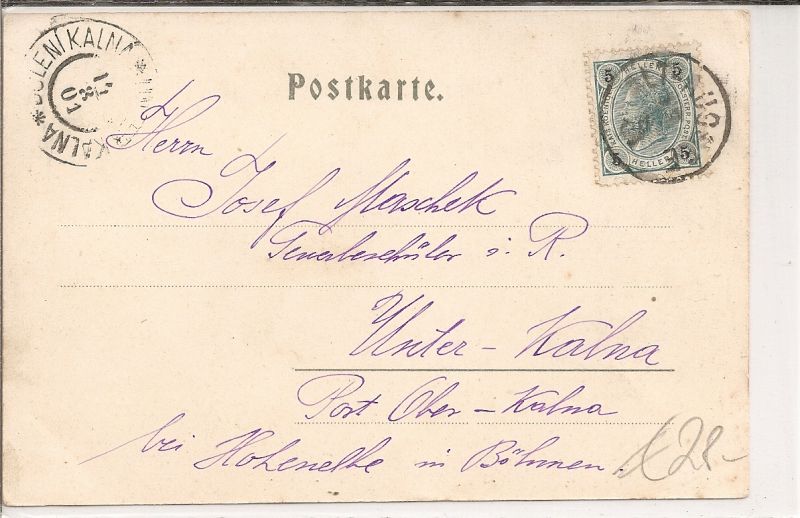 DOLENÍ KALNA
KALNA
8
01
Postkarte.
5 HELLER 5
5 HELLER 5
Herrn
Josef Maschek
Gewerbeschüler i. R.
Unter-Kalna
Post Ober-Kalna
bei Hohenelbe in Böhmen.
28-